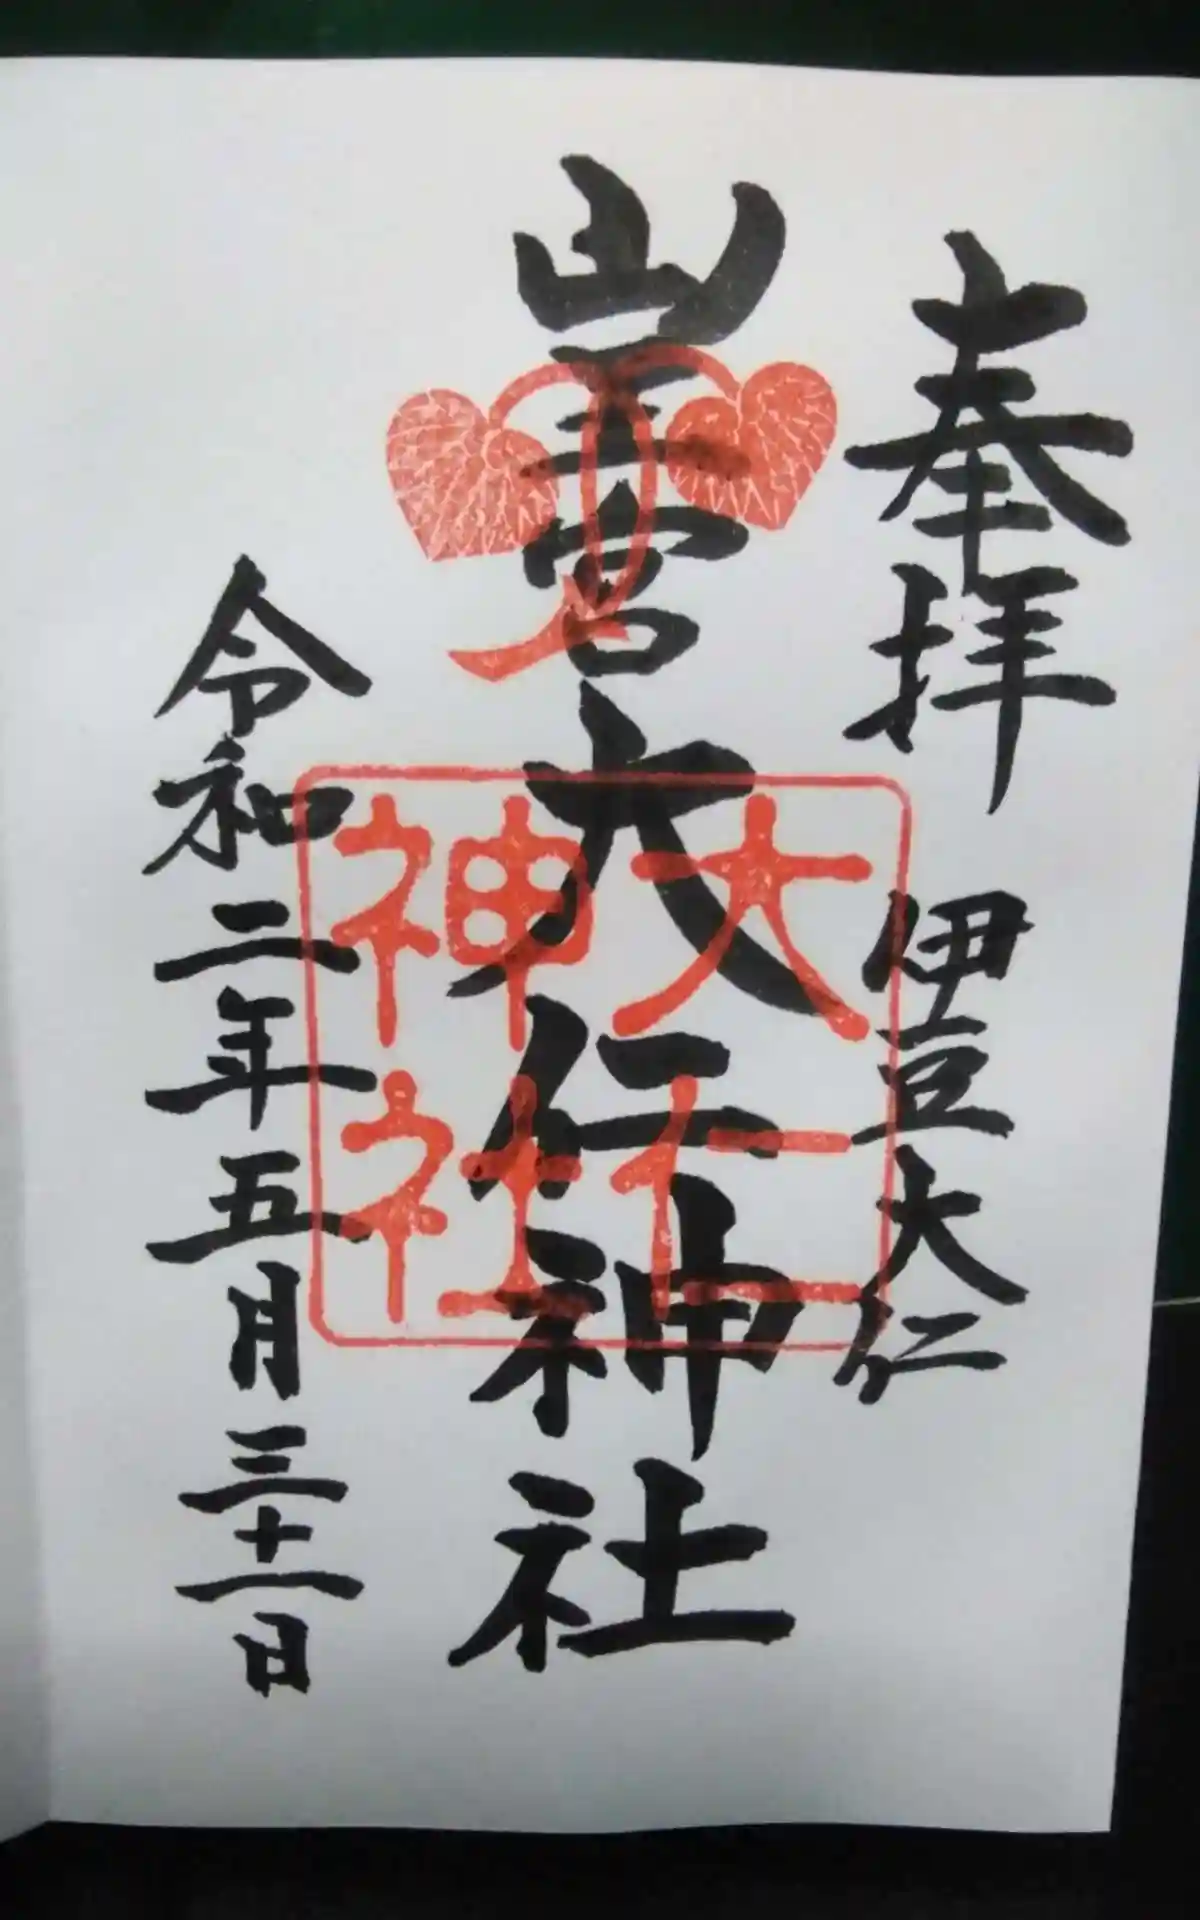 奉拝
伊豆大仁
山王宮大仁神社
大仁
神社
令和二年五月三十一日